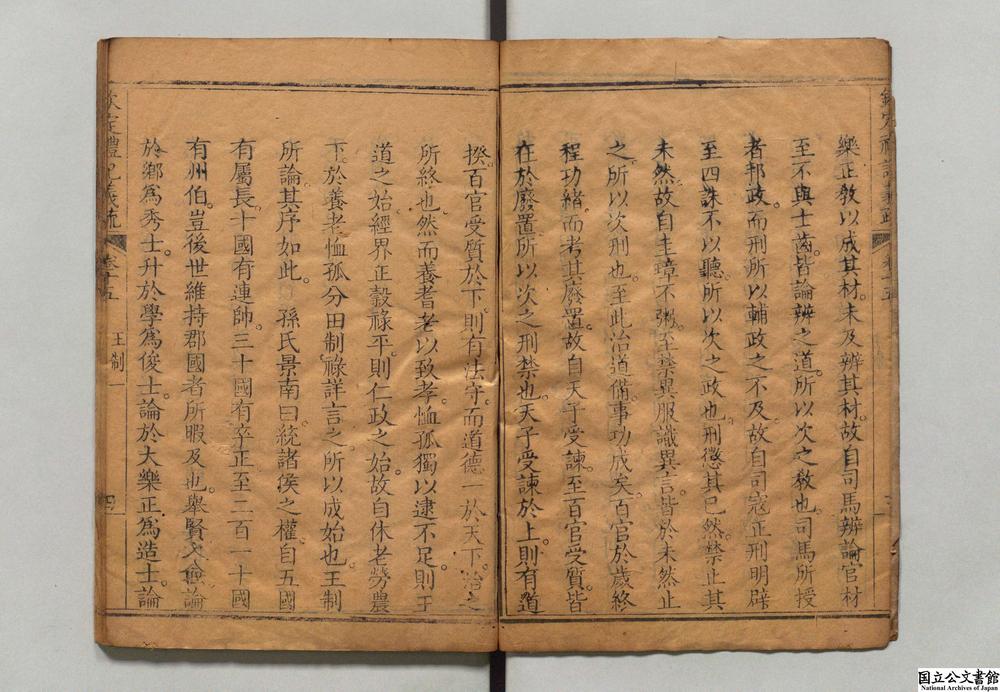 欽定禮記義疏 卷十五
樂正教以成其材。未及辨其材。故自司馬辨論官材
至不與士齒。皆論辨之道。所以次之教也。司馬所授
者邦政。而刑所以輔政之不及。故自司寇正刑明辟
至四誅不以聽。所以次之政也。刑懲其已然。禁止其
未然。故自圭璋不粥。至禁異服識異言。皆於未然止
之。所以次刑也。至此治道備。事功成矣。百官於歲終
程功緒。而考其廢置。故自天子受諫。至百官受質。皆
在於廢置。所以次之刑禁也。天子受諫於上。則有道
揆。百官受質於下。則有法守。而道德一於天下。治之
所終也。然而養耆老以致孝。恤孤獨以逮不足。則王
道之始。經界正穀祿平。則仁政之始。故自休老勞農
下。於養老恤孤分田制祿詳言之。所以成始也。王制
所論其序如此。 孫氏景南曰。統諸侯之權。自五國
有屬長。十國有連帥。三十國有卒正。至二百一十國
有州伯。豈後世維持郡國者所暇及也。舉賢之
於鄉為秀士。升於學為俊士。論於大樂正為造士。論
欽定禮記義疏 卷十五 王制一 四
国立公文書館
National Archives of Japan